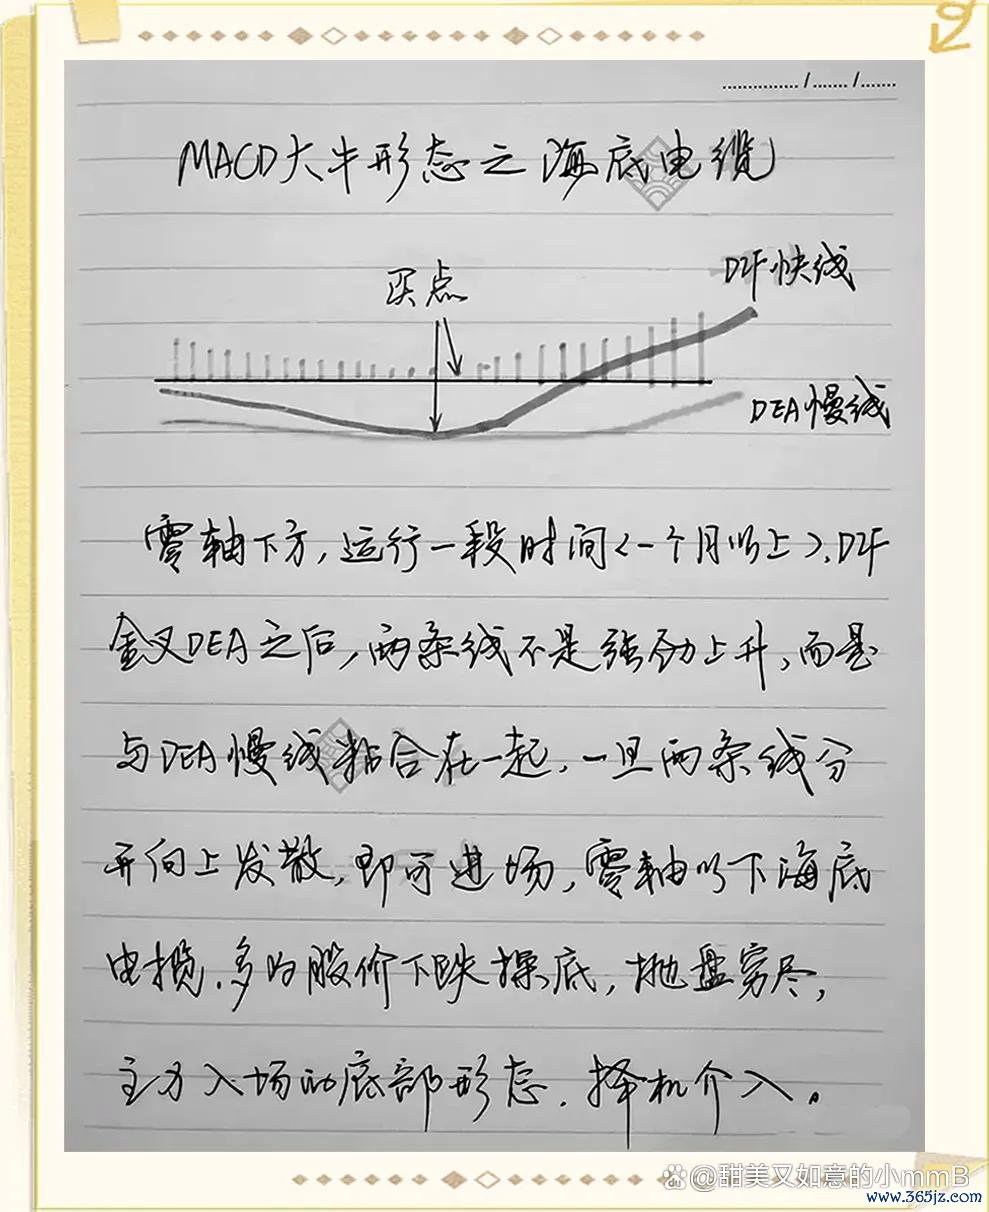 ....../....../......
MACD大牛形态之海底电缆
买点
DIF快线
DEA慢线
零轴下方,运行一段时间<一个月以上>,DIF
金叉DEA之后,两条线不是强劲上升,而是
与DEA慢线粘合在一起,一旦两条线分
开向上发散,即可进场,零轴以下海底
电揽,多为股价下跌探底,抛盘穷尽,
主力入场的底部形态,择机介入。
@甜美又如意的小mmB
www.365jz.com